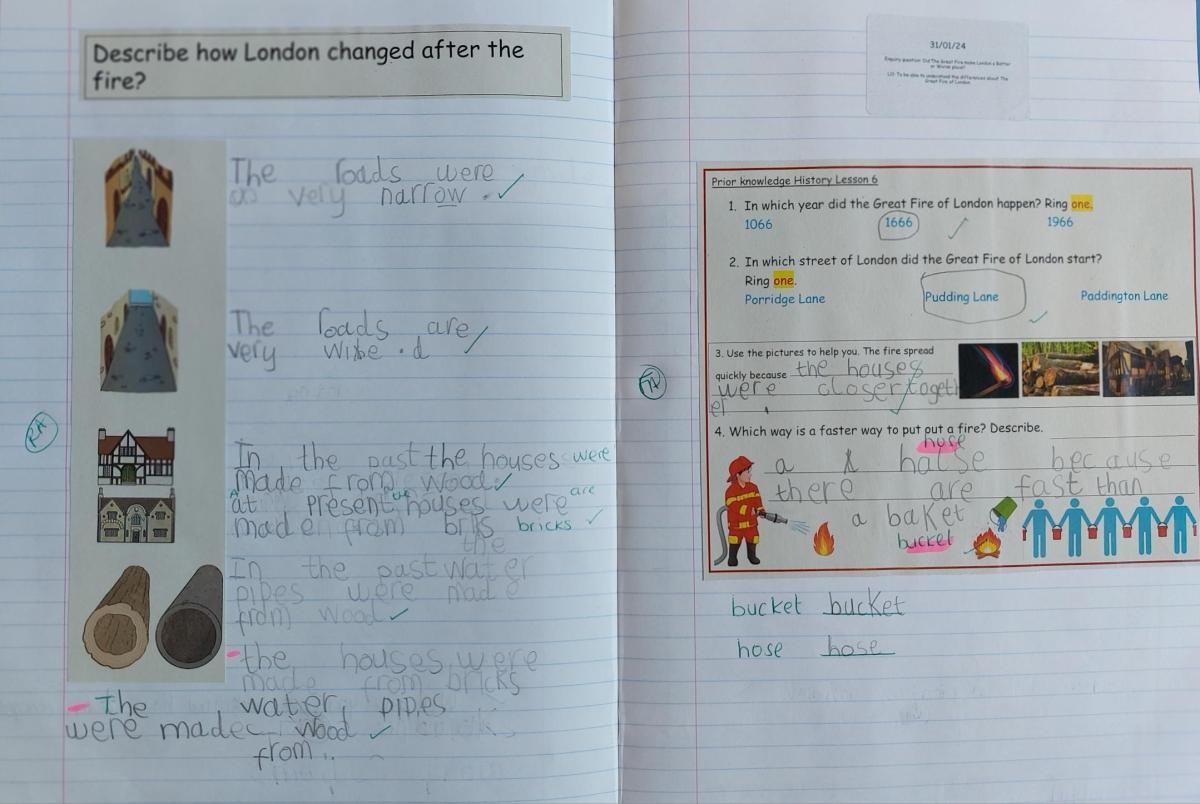 Describe how London changed after the
fire?
The roads were
as very narrow.
The roads are
very wibe.d
RA
In the past the houses were
made from wood
At present the houses were are
made from briks bricks
the
In the past water
pipes were made
from wood
the houses were
made from bricks
The water pipes
were made wood
from..
31/01/24
Enquiry question: Did The Great Fire make London a Better
or Worse place?
LO: To be able to understand the differences about The
Great Fire of London
Prior knowledge History Lesson 6
1. In which year did the Great Fire of London happen? Ring one.
1066 1666 1966
2. In which street of London did the Great Fire of London start?
Ring one.
Porridge Lane Pudding Lane Paddington Lane
3. Use the pictures to help you. The fire spread
quickly because the houses
were closer togeth
er.
4. Which way is a faster way to put put a fire? Describe.
hose
a house because
there are fast than
a baket
bucket
bucket bucket
hose hose